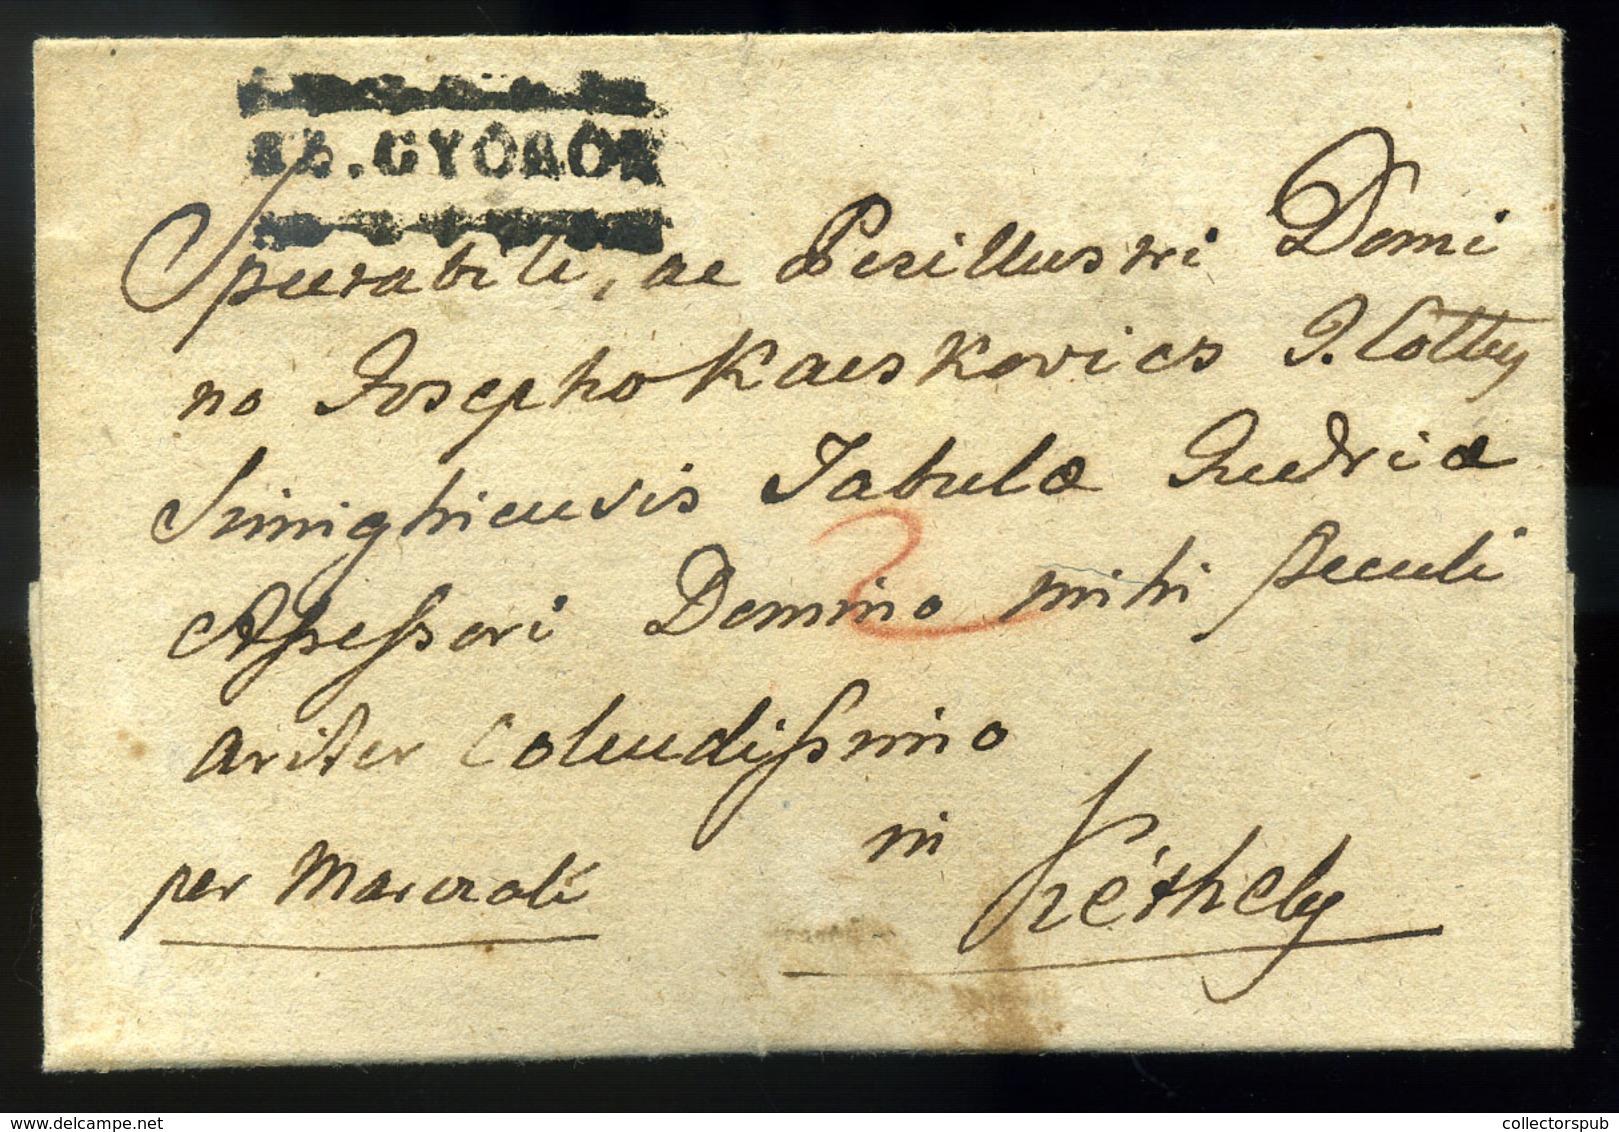 SZ. GYÖRÖK
Spectabili, ac Perillustri Domi
no Josepho Kacskovics I. Cottus
Simighiensis Tabulæ Judriæ
Assessori Domino mihi peculi
ariter Colendissimo
in
per Marczali
Kéthely
collectorspub